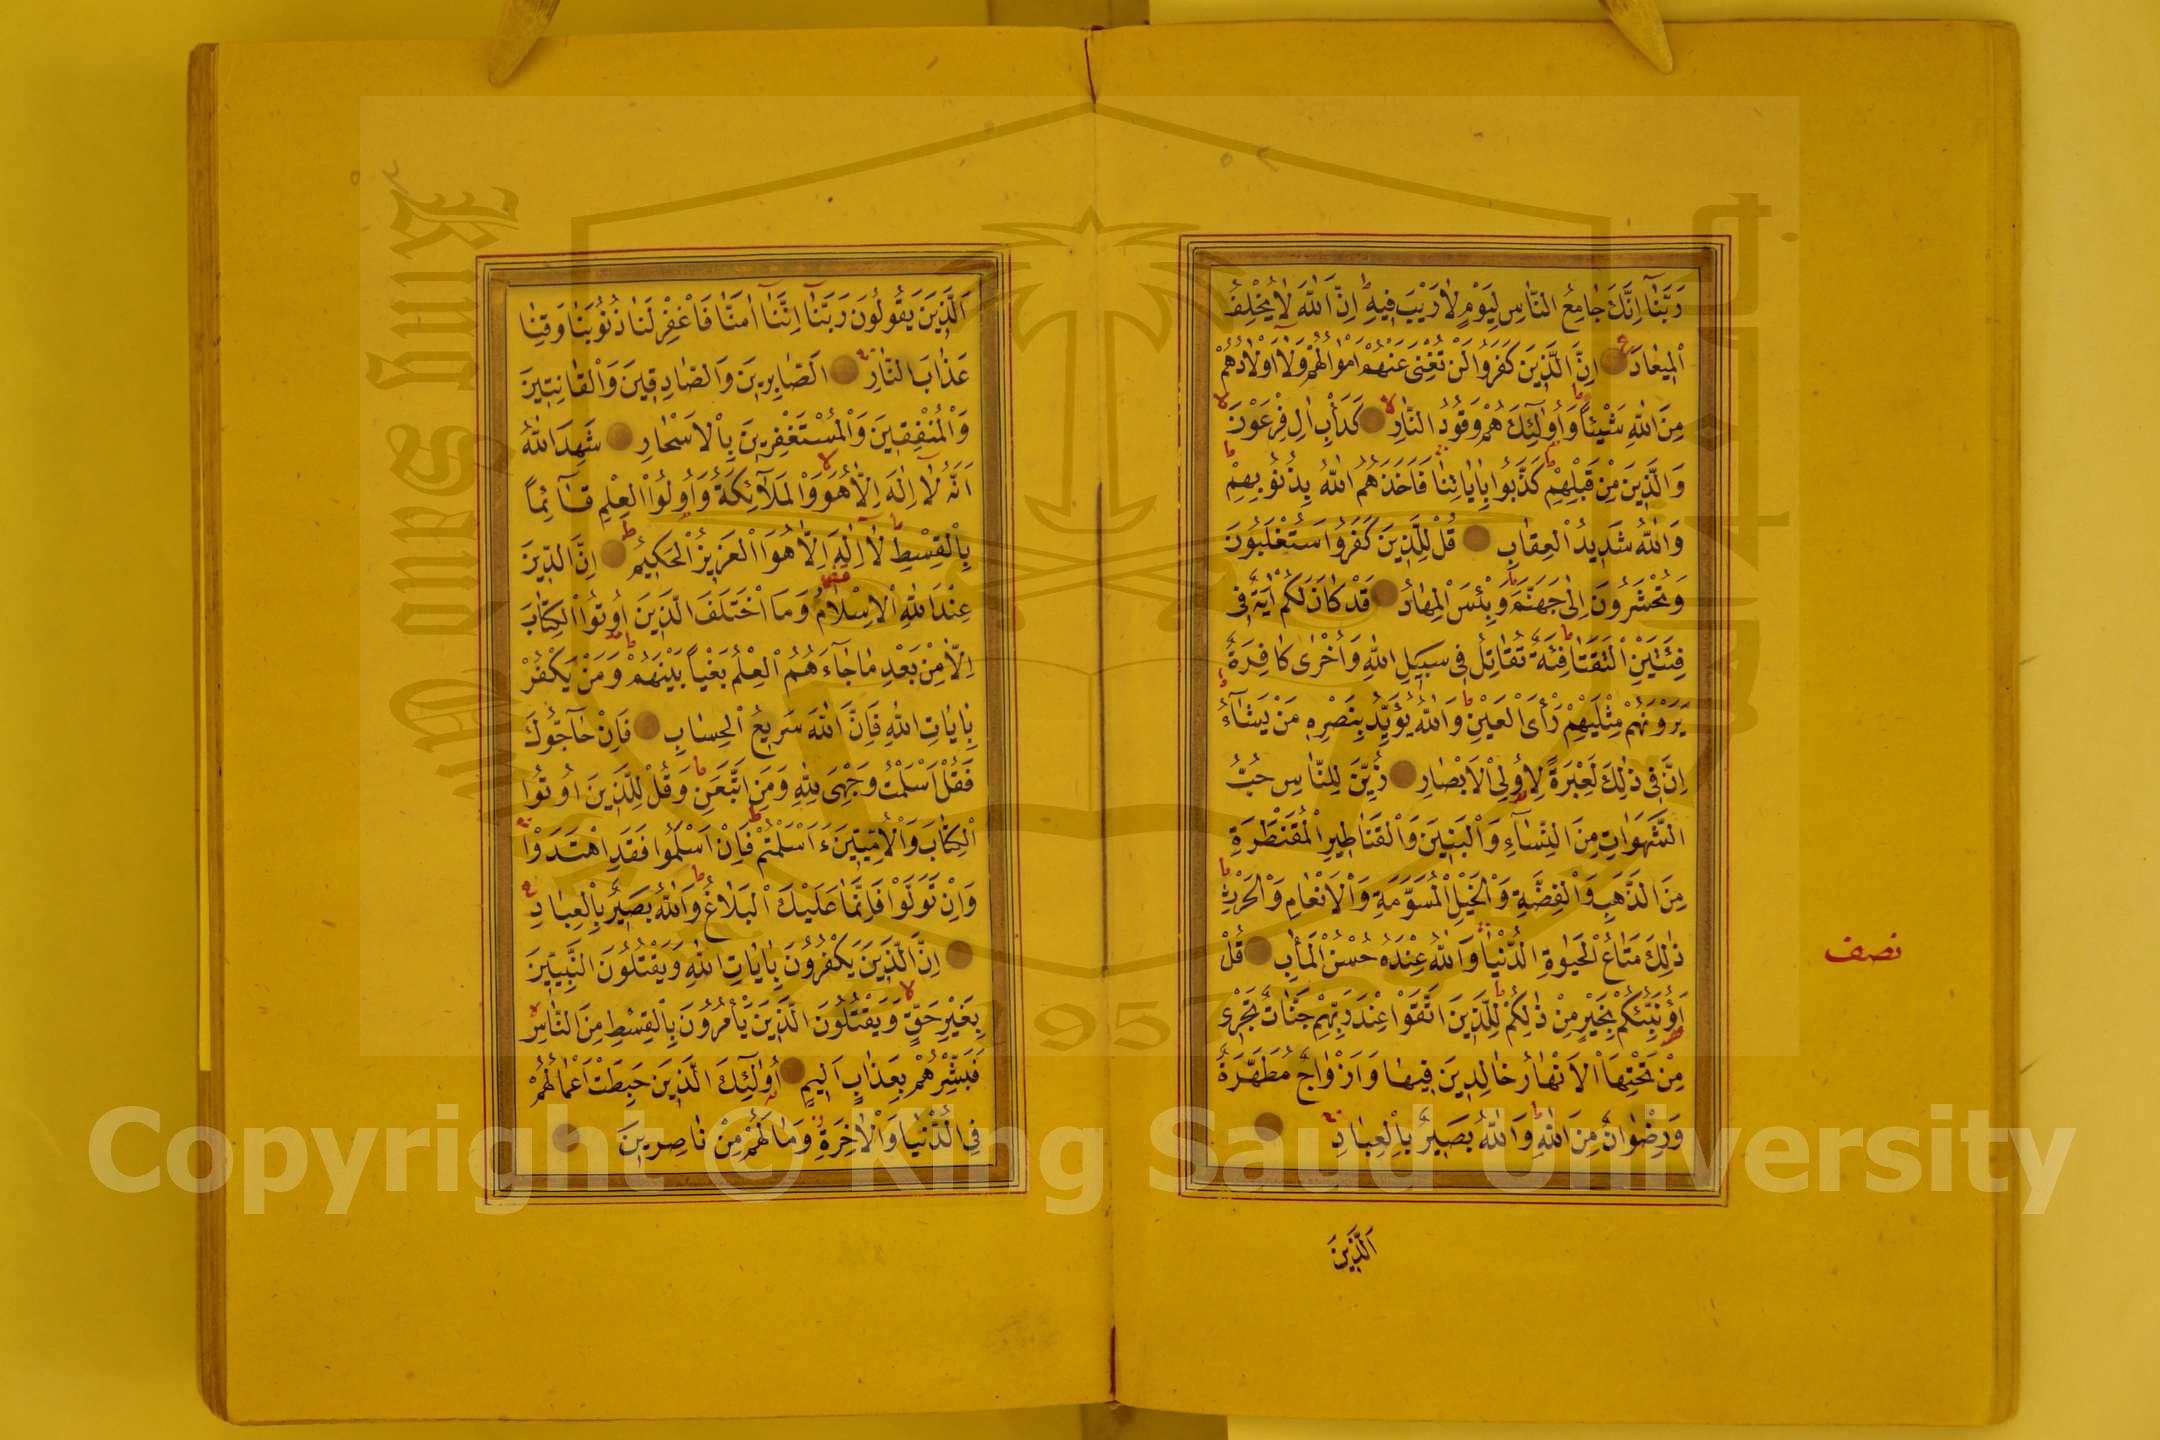 رَبَّنَٓا اِنَّكَ جَامِعُ النَّاسِ لِيَوْمٍ لَا رَيْبَ فِيهِ ط اِنَّ اللّٰهَ لَا يُخْلِفُ
الْمِيعَادَ ع اِنَّ الَّذِينَ كَفَرُوا لَنْ تُغْنِىَ عَنْهُمْ اَمْوَالُهُمْ وَلَٓا اَوْلَادُهُمْ
مِنَ اللّٰهِ شَيْئًا ط وَاُولٰٓئِكَ هُمْ وَقُودُ النَّارِ لا كَدَاْبِ اٰلِ فِرْعَوْنَ لا
وَالَّذِينَ مِنْ قَبْلِهِمْ ط كَذَّبُوا بِاٰيَاتِنَا فَاَخَذَهُمُ اللّٰهُ بِذُنُوبِهِمْ ط
وَاللّٰهُ شَدِيدُ الْعِقَابِ قُلْ لِلَّذِينَ كَفَرُوا سَتُغْلَبُونَ
وَتُحْشَرُونَ اِلٰى جَهَنَّمَ ط وَبِئْسَ الْمِهَادُ قَدْ كَانَ لَكُمْ اٰيَةٌ فِى
فِئَتَيْنِ الْتَقَتَا ط فِئَةٌ تُقَاتِلُ فِى سَبِيلِ اللّٰهِ وَاُخْرٰى كَافِرَةٌ
يَرَوْنَهُمْ مِثْلَيْهِمْ رَأْىَ الْعَيْنِ ط وَاللّٰهُ يُؤَيِّدُ بِنَصْرِهِ مَنْ يَشَٓاءُ ط
اِنَّ فِى ذٰلِكَ لَعِبْرَةً لِاُولِى الْاَبْصَارِ زُيِّنَ لِلنَّاسِ حُبُّ
الشَّهَوَاتِ مِنَ النِّسَٓاءِ وَالْبَنِينَ وَالْقَنَاطِيرِ الْمُقَنْطَرَةِ
مِنَ الذَّهَبِ وَالْفِضَّةِ وَالْخَيْلِ الْمُسَوَّمَةِ وَالْاَنْعَامِ وَالْحَرْثِ ط
ذٰلِكَ مَتَاعُ الْحَيٰوةِ الدُّنْيَا وَاللّٰهُ عِنْدَهُ حُسْنُ الْمَاٰبِ قُلْ
اَؤُنَبِّئُكُمْ بِخَيْرٍ مِنْ ذٰلِكُمْ ط لِلَّذِينَ اتَّقَوْا عِنْدَ رَبِّهِمْ جَنَّاتٌ تَجْرِى
مِنْ تَحْتِهَا الْاَنْهَارُ خَالِدِينَ فِيهَا وَاَزْوَاجٌ مُطَهَّرَةٌ
وَرِضْوَانٌ مِنَ اللّٰهِ ط وَاللّٰهُ بَصِيرٌ بِالْعِبَادِ
اَلَّذِينَ
نصف
اَلَّذِينَ يَقُولُونَ رَبَّنَٓا اِنَّنَٓا اٰمَنَّا فَاغْفِرْ لَنَا ذُنُوبَنَا وَقِنَا
عَذَابَ النَّارِ اَلصَّابِرِينَ وَالصَّادِقِينَ وَالْقَانِتِينَ
وَالْمُنْفِقِينَ وَالْمُسْتَغْفِرِينَ بِالْاَسْحَارِ شَهِدَ اللّٰهُ
اَنَّهُ لَٓا اِلٰهَ اِلَّا هُوَ لا وَالْمَلٰٓئِكَةُ وَاُولُوا الْعِلْمِ قَٓائِمًا
بِالْقِسْطِ ط لَٓا اِلٰهَ اِلَّا هُوَ الْعَزِيزُ الْحَكِيمُ ط اِنَّ الدِّينَ
عِنْدَ اللّٰهِ الْاِسْلَامُ وَمَا اخْتَلَفَ الَّذِينَ اُوتُوا الْكِتَابَ
اِلَّا مِنْ بَعْدِ مَا جَٓاءَهُمُ الْعِلْمُ بَغْيًا بَيْنَهُمْ ط وَمَنْ يَكْفُرْ
بِاٰيَاتِ اللّٰهِ فَاِنَّ اللّٰهَ سَرِيعُ الْحِسَابِ فَاِنْ حَٓاجُّوكَ
فَقُلْ اَسْلَمْتُ وَجْهِىَ لِلّٰهِ وَمَنِ اتَّبَعَنِ ط وَقُلْ لِلَّذِينَ اُوتُوا
الْكِتَابَ وَالْاُمِّيِّينَ ءَاَسْلَمْتُمْ ط فَاِنْ اَسْلَمُوا فَقَدِ اهْتَدَوْا
وَاِنْ تَوَلَّوْا فَاِنَّمَا عَلَيْكَ الْبَلَاغُ ط وَاللّٰهُ بَصِيرٌ بِالْعِبَادِ ع
اِنَّ الَّذِينَ يَكْفُرُونَ بِاٰيَاتِ اللّٰهِ وَيَقْتُلُونَ النَّبِيِّينَ
بِغَيْرِ حَقٍّ لا وَيَقْتُلُونَ الَّذِينَ يَأْمُرُونَ بِالْقِسْطِ مِنَ النَّاسِ لا
فَبَشِّرْهُمْ بِعَذَابٍ اَلِيمٍ اُولٰٓئِكَ الَّذِينَ حَبِطَتْ اَعْمَالُهُمْ
فِى الدُّنْيَا وَالْاٰخِرَةِ وَمَا لَهُمْ مِنْ نَاصِرِينَ
King Saud University
1957
Copyright © King Saud University